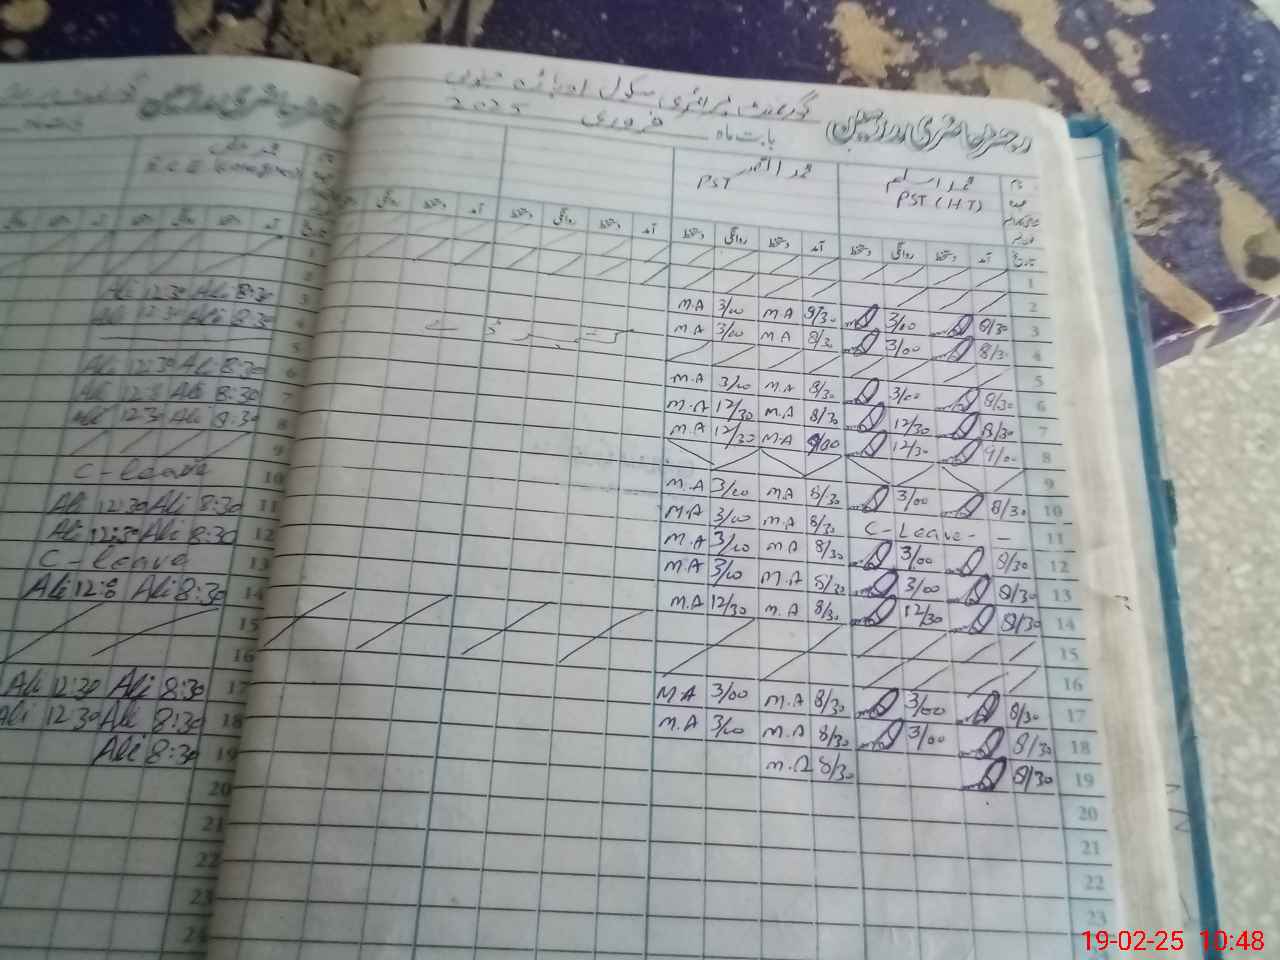 رجسٹر حاضری مدرسین گورنمنٹ پرائمری سکول
بابت ماہ فروری 2025
محمد اسلم
PST (HT)
PST
آمد دستخط روانگی دستخط آمد دستخط روانگی دستخط
1
2
M.A 3/00 M.A 8/30 3/00 8/30 3
M.A 3/00 M.A 8/30 3/00 8/30 4
5
M.A 3/00 M.A 8/30 3/00 8/30 6
M.A 12/30 M.A 8/30 12/30 8/30 7
M.A 12/30 M.A 9/00 12/30 9/00 8
9
M.A 3/00 M.A 8/30 3/00 8/30 10
M.A 3/00 M.A 8/30 C-Leave - - 11
M.A 3/00 M.A 8/30 3/00 8/30 12
M.A 3/00 M.A 8/30 3/00 8/30 13
M.A 12/30 M.A 8/30 12/30 8/30 14
15
16
M.A 3/00 M.A 8/30 3/00 8/30 17
M.A 3/00 M.A 8/30 3/00 8/30 18
M.A 8/30 8/30 19
20
21
22
23
رجسٹر حاضری مدرسین
E.C.E
1
2
Ali 12:30 Ali 8:30 3
Ali 12:30 Ali 8:30 4
5
Ali 12:30 Ali 8:30 6
Ali Ali 8:30 7
Ali 12:30 Ali 8:30 8
9
C-leave 10
Ali 12:30 Ali 8:30 11
Ali 12:30 Ali 8:30 12
C-leave 13
Ali Ali 8:30 14
15
16
Ali 12:30 Ali 8:30 17
Ali 12:30 Ali 8:30 18
Ali 8:30 19
20
21
22
23
19-02-25 10:48